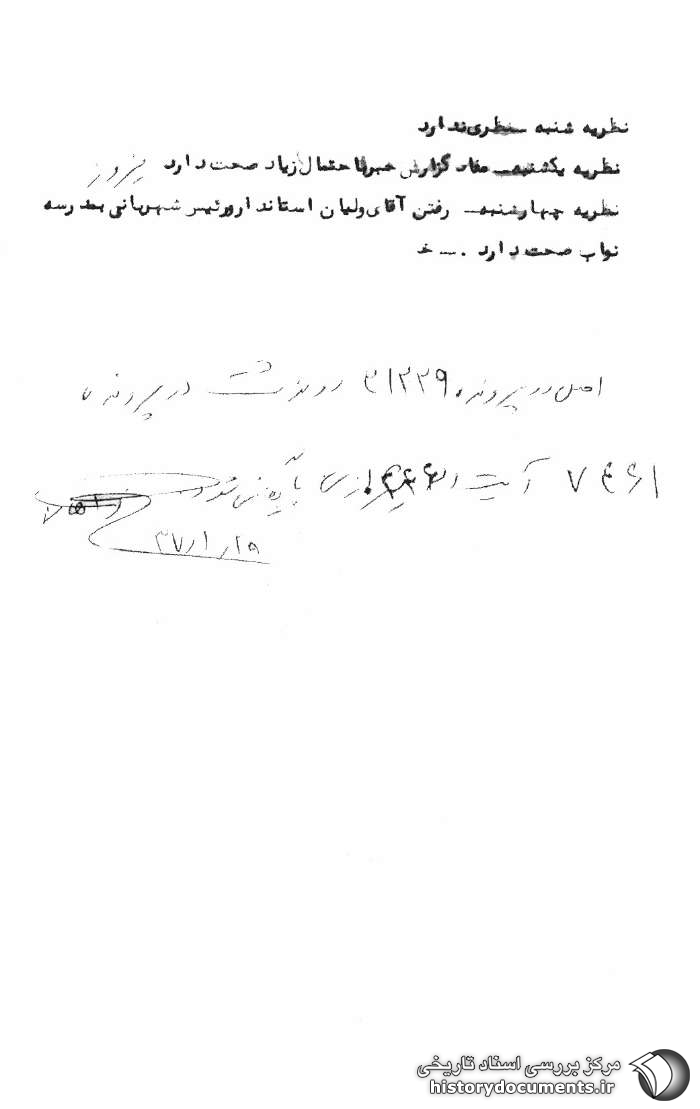 نظریه شنبه ـ نظری ندارد
نظریه یکشنبه ـ مفاد گزارش خبر با احتمال زیاد صحت دارد
نظریه چهارشنبه ـ رفتن آقای ولیان استاندار و رئیس شهربانی بمدرسه
نواب صحت دارد . ـ خ
اصل در پرونده ۳۱۲۲۹ رونوشت در پرونده
آیت اله شیرازی
مرکز بررسی اسناد تاریخی
historydocuments.ir